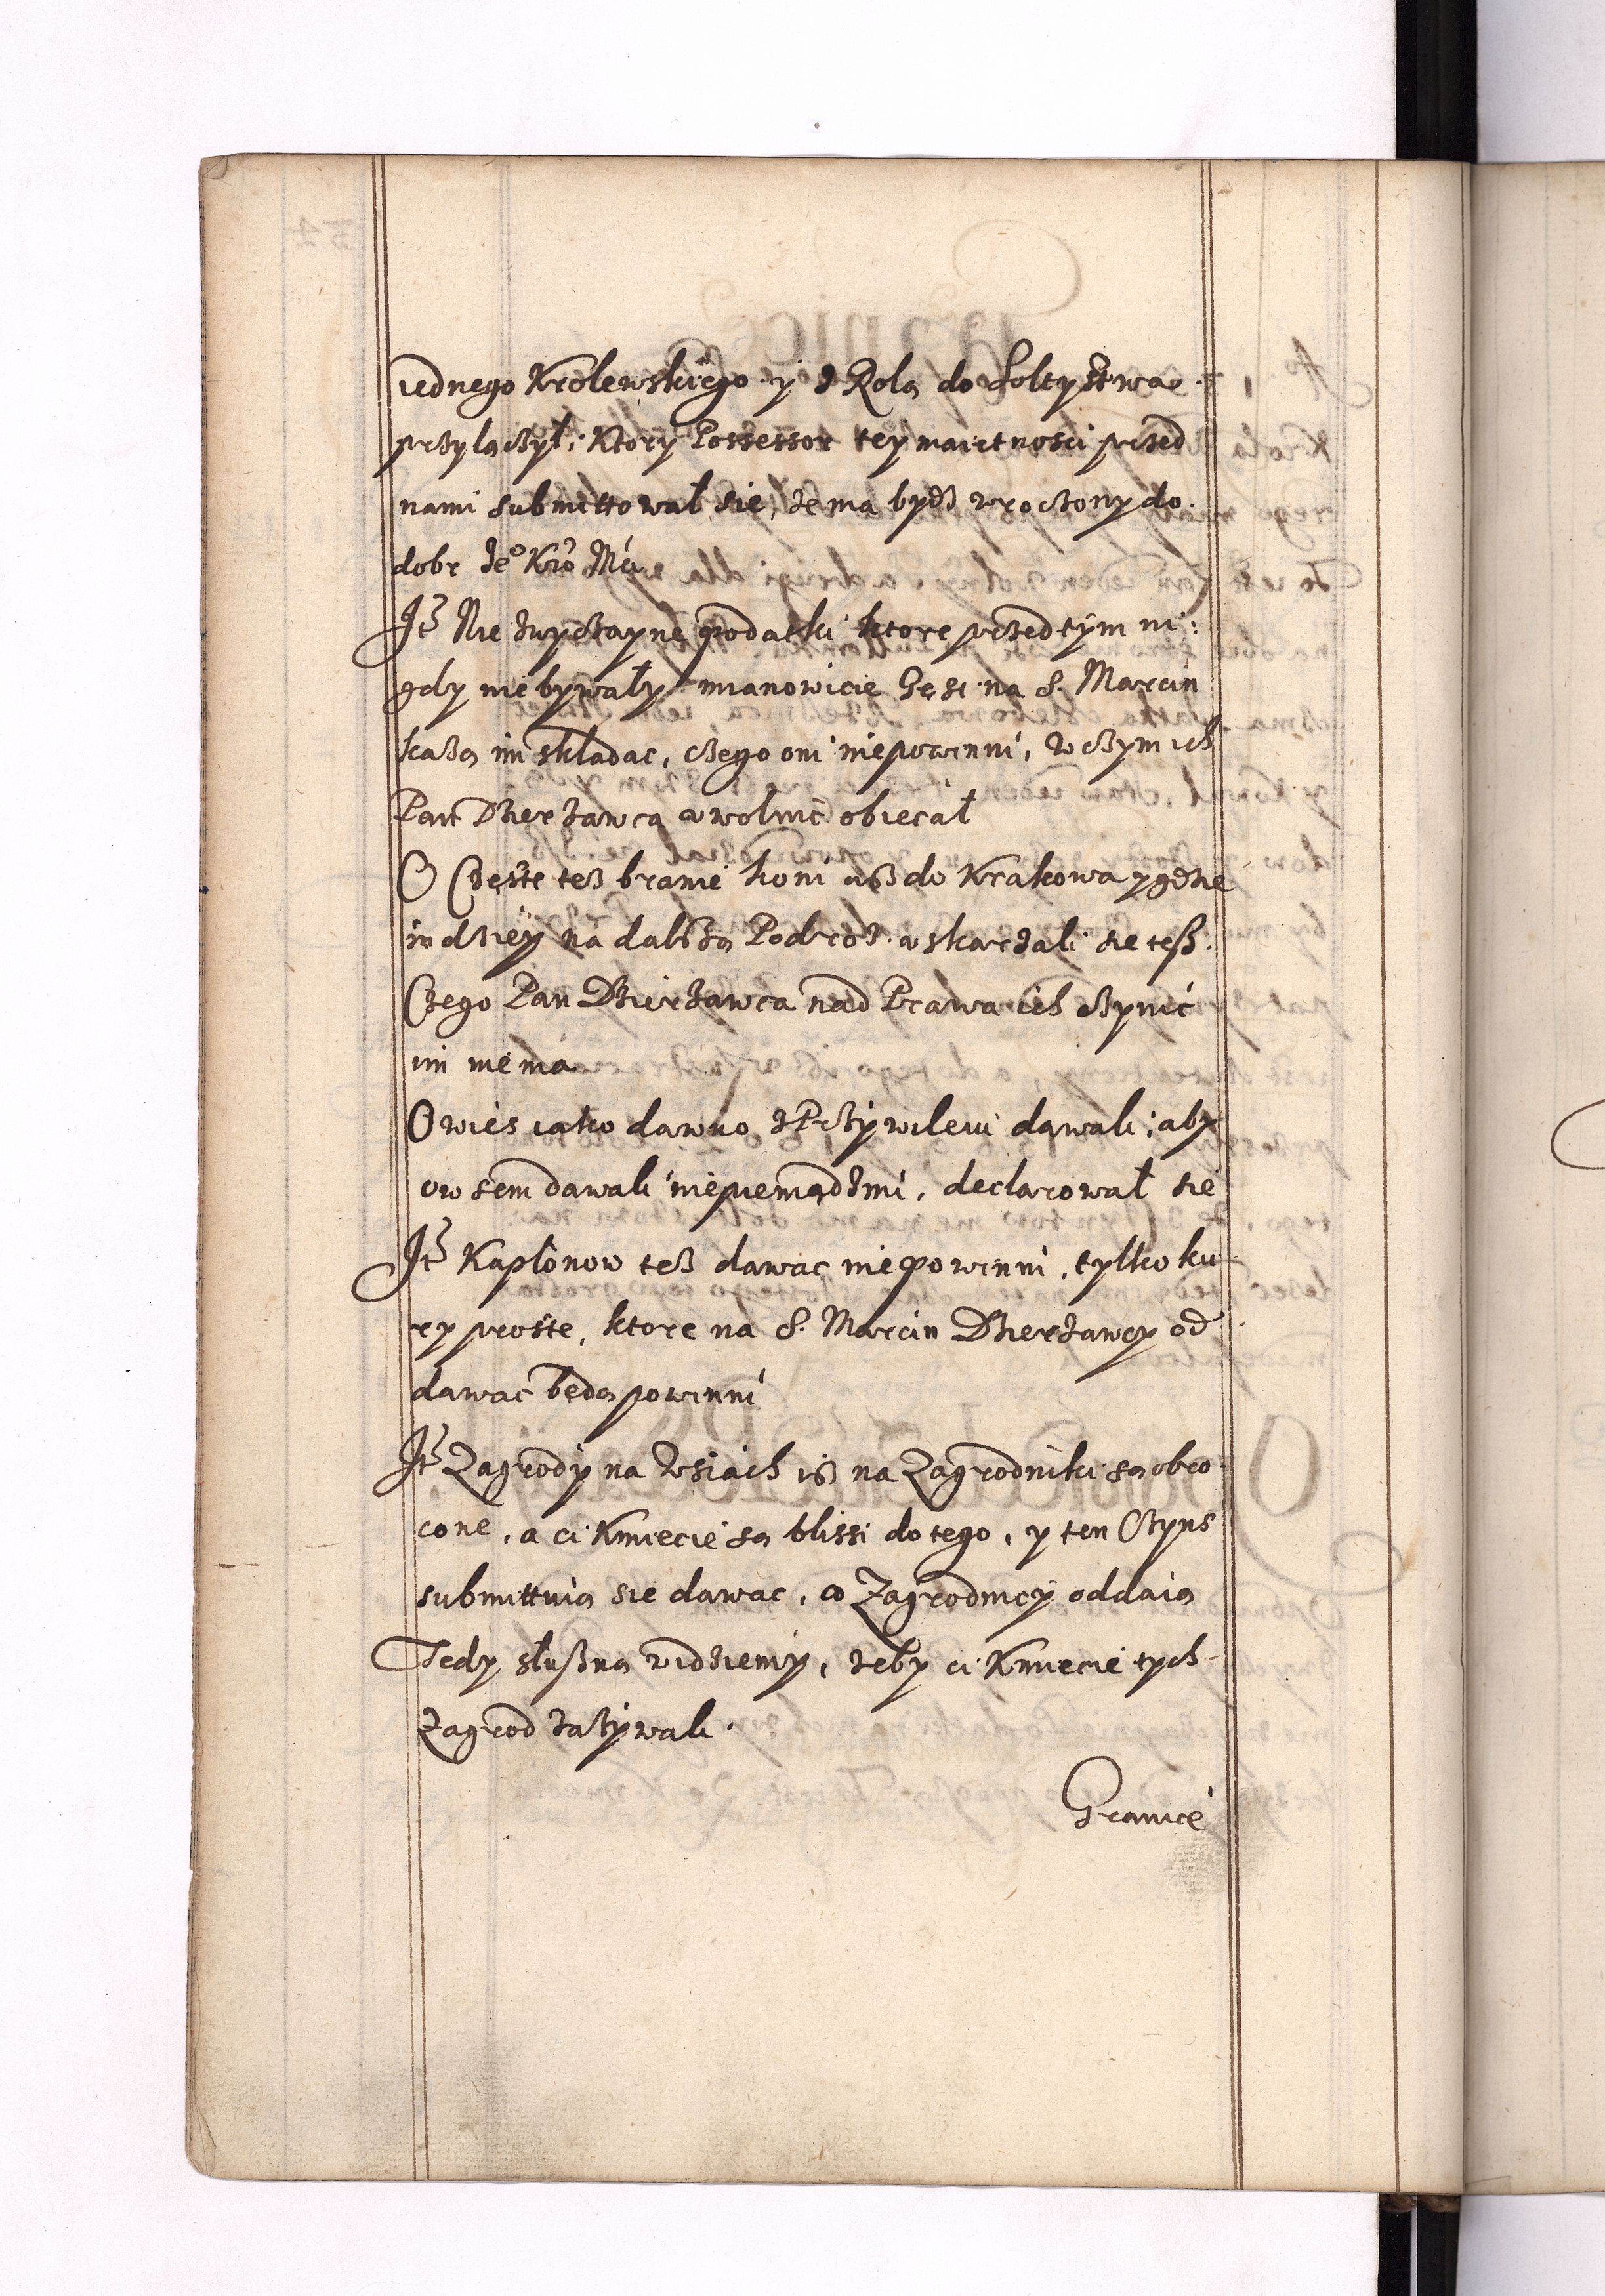 iednego Krolewskiego y z Rolą do Soltystwa
przyłączył: Ktory Possessor tey maietnosci przed
nami submittował sie, że ma bydź wrocony do
dobr Je° Kró Mći
Jtē Nie zwyczayne podatki ktore przed tym ni:
gdy nie bywały mianowicie Gęsi na S. Marcin
każą im składac, czego oni niepowinni, w czym ich
Pan Dzierżawca uwolnić obiecał
O Częste tesz branie koni asz do Krakowa y gdzie
indziey na dalszą Podroż uskarżali sie tesz.
Czego Pan Dzierżawca nad Prawa ich czynić
im niema
Owies iako dawno z Przywileiu dawali: aby
owsem dawali niepieniądzmi, declarował sie
Jtē Kapłonow tesz dawac niepowinni, tylko ku
ry proste, ktore na S. Marcin Dzierżawcy od
dawac będą powinni
Jtē Zagrody na Wsiach isz na Zagrodniki są obro
cone, a ci Kmiecie są blissi do tego, y ten Czyns
submittuią sie dawac, co Zagrodnicy oddaią
Tedy słuszną widziemy, żeby ci Kmiecie tych
Zagrod zażywali.
Granice